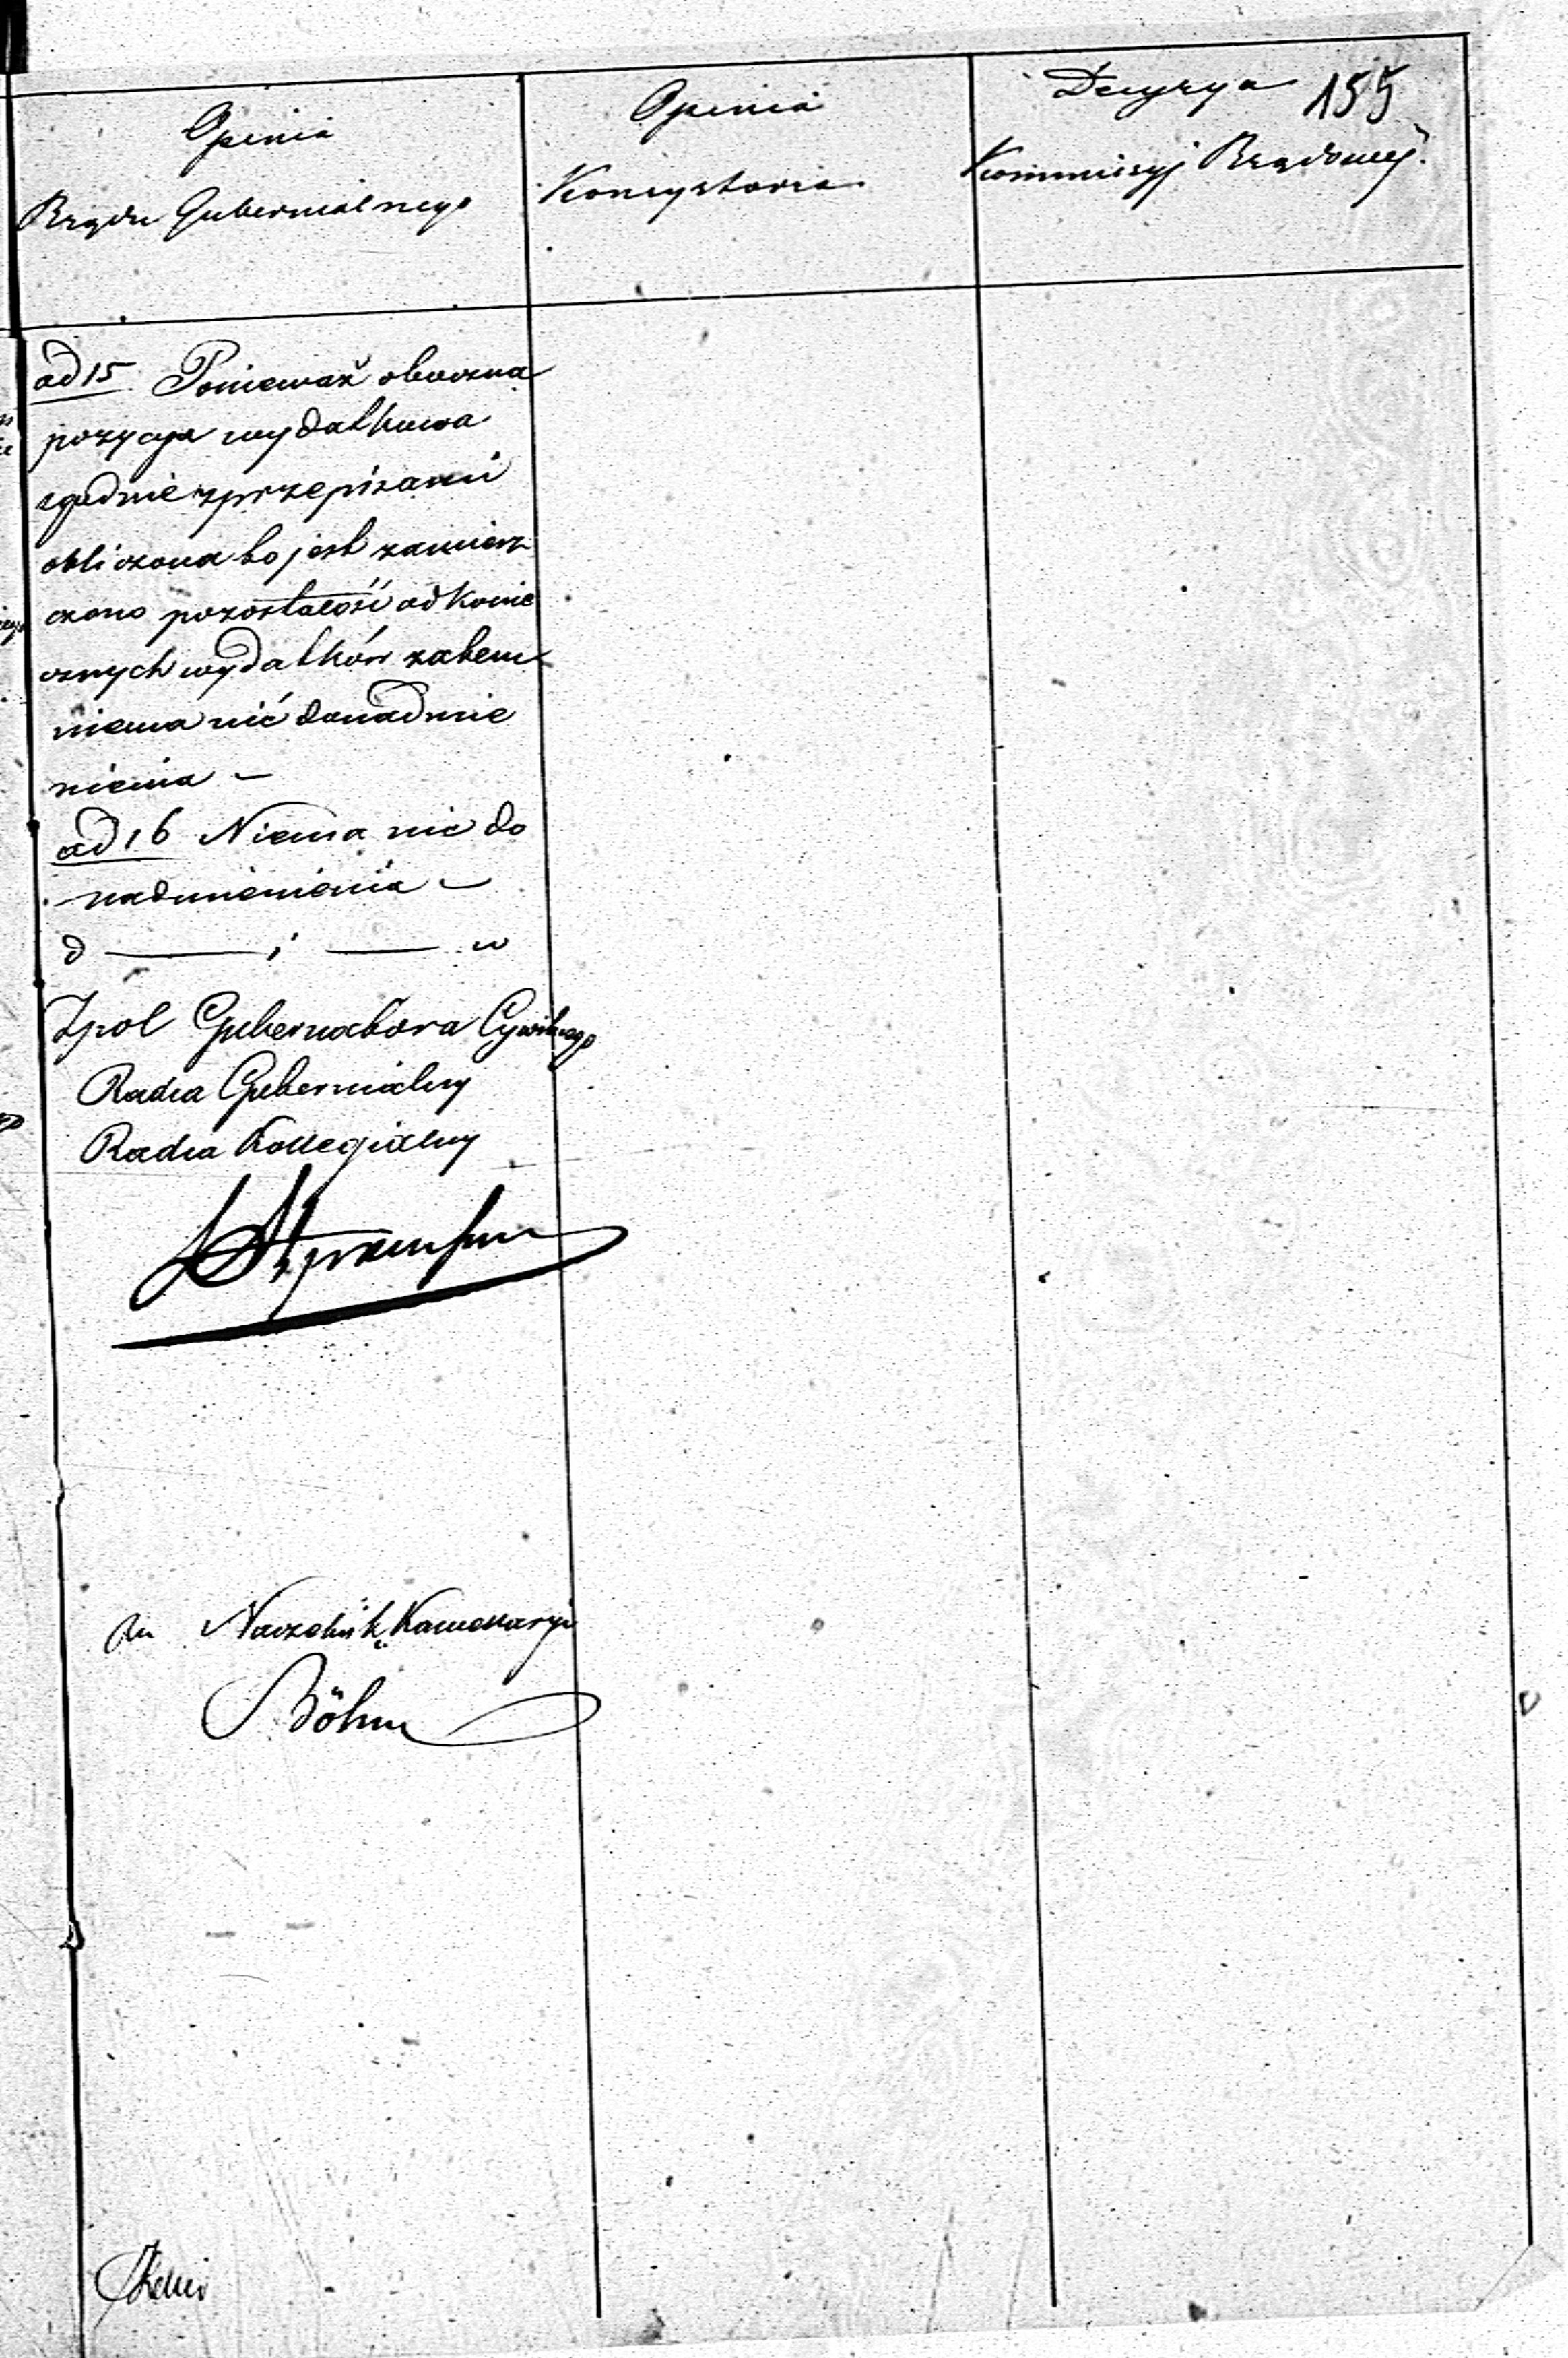 155
Opinia
Rządu Gubernialnego
Opinia
Konsystorza
Decyzya
Kommissyj Rządowej
ad 15 Ponieważ oboczna
pozycya wydatkowa
zgodnie z przepisami
obliczona to jest zamiesz
czono pozostałość od konie
cznych wydatków zatem
niema nić do nadmie
nienia –
ad 16 Niema nic do
nadmienienia –
d — i — w
Zpol Gubernatora Cywilnego
Radca Gubernialny
Radca Kollegialny
Naczelnik Kancellaryi
Böhm